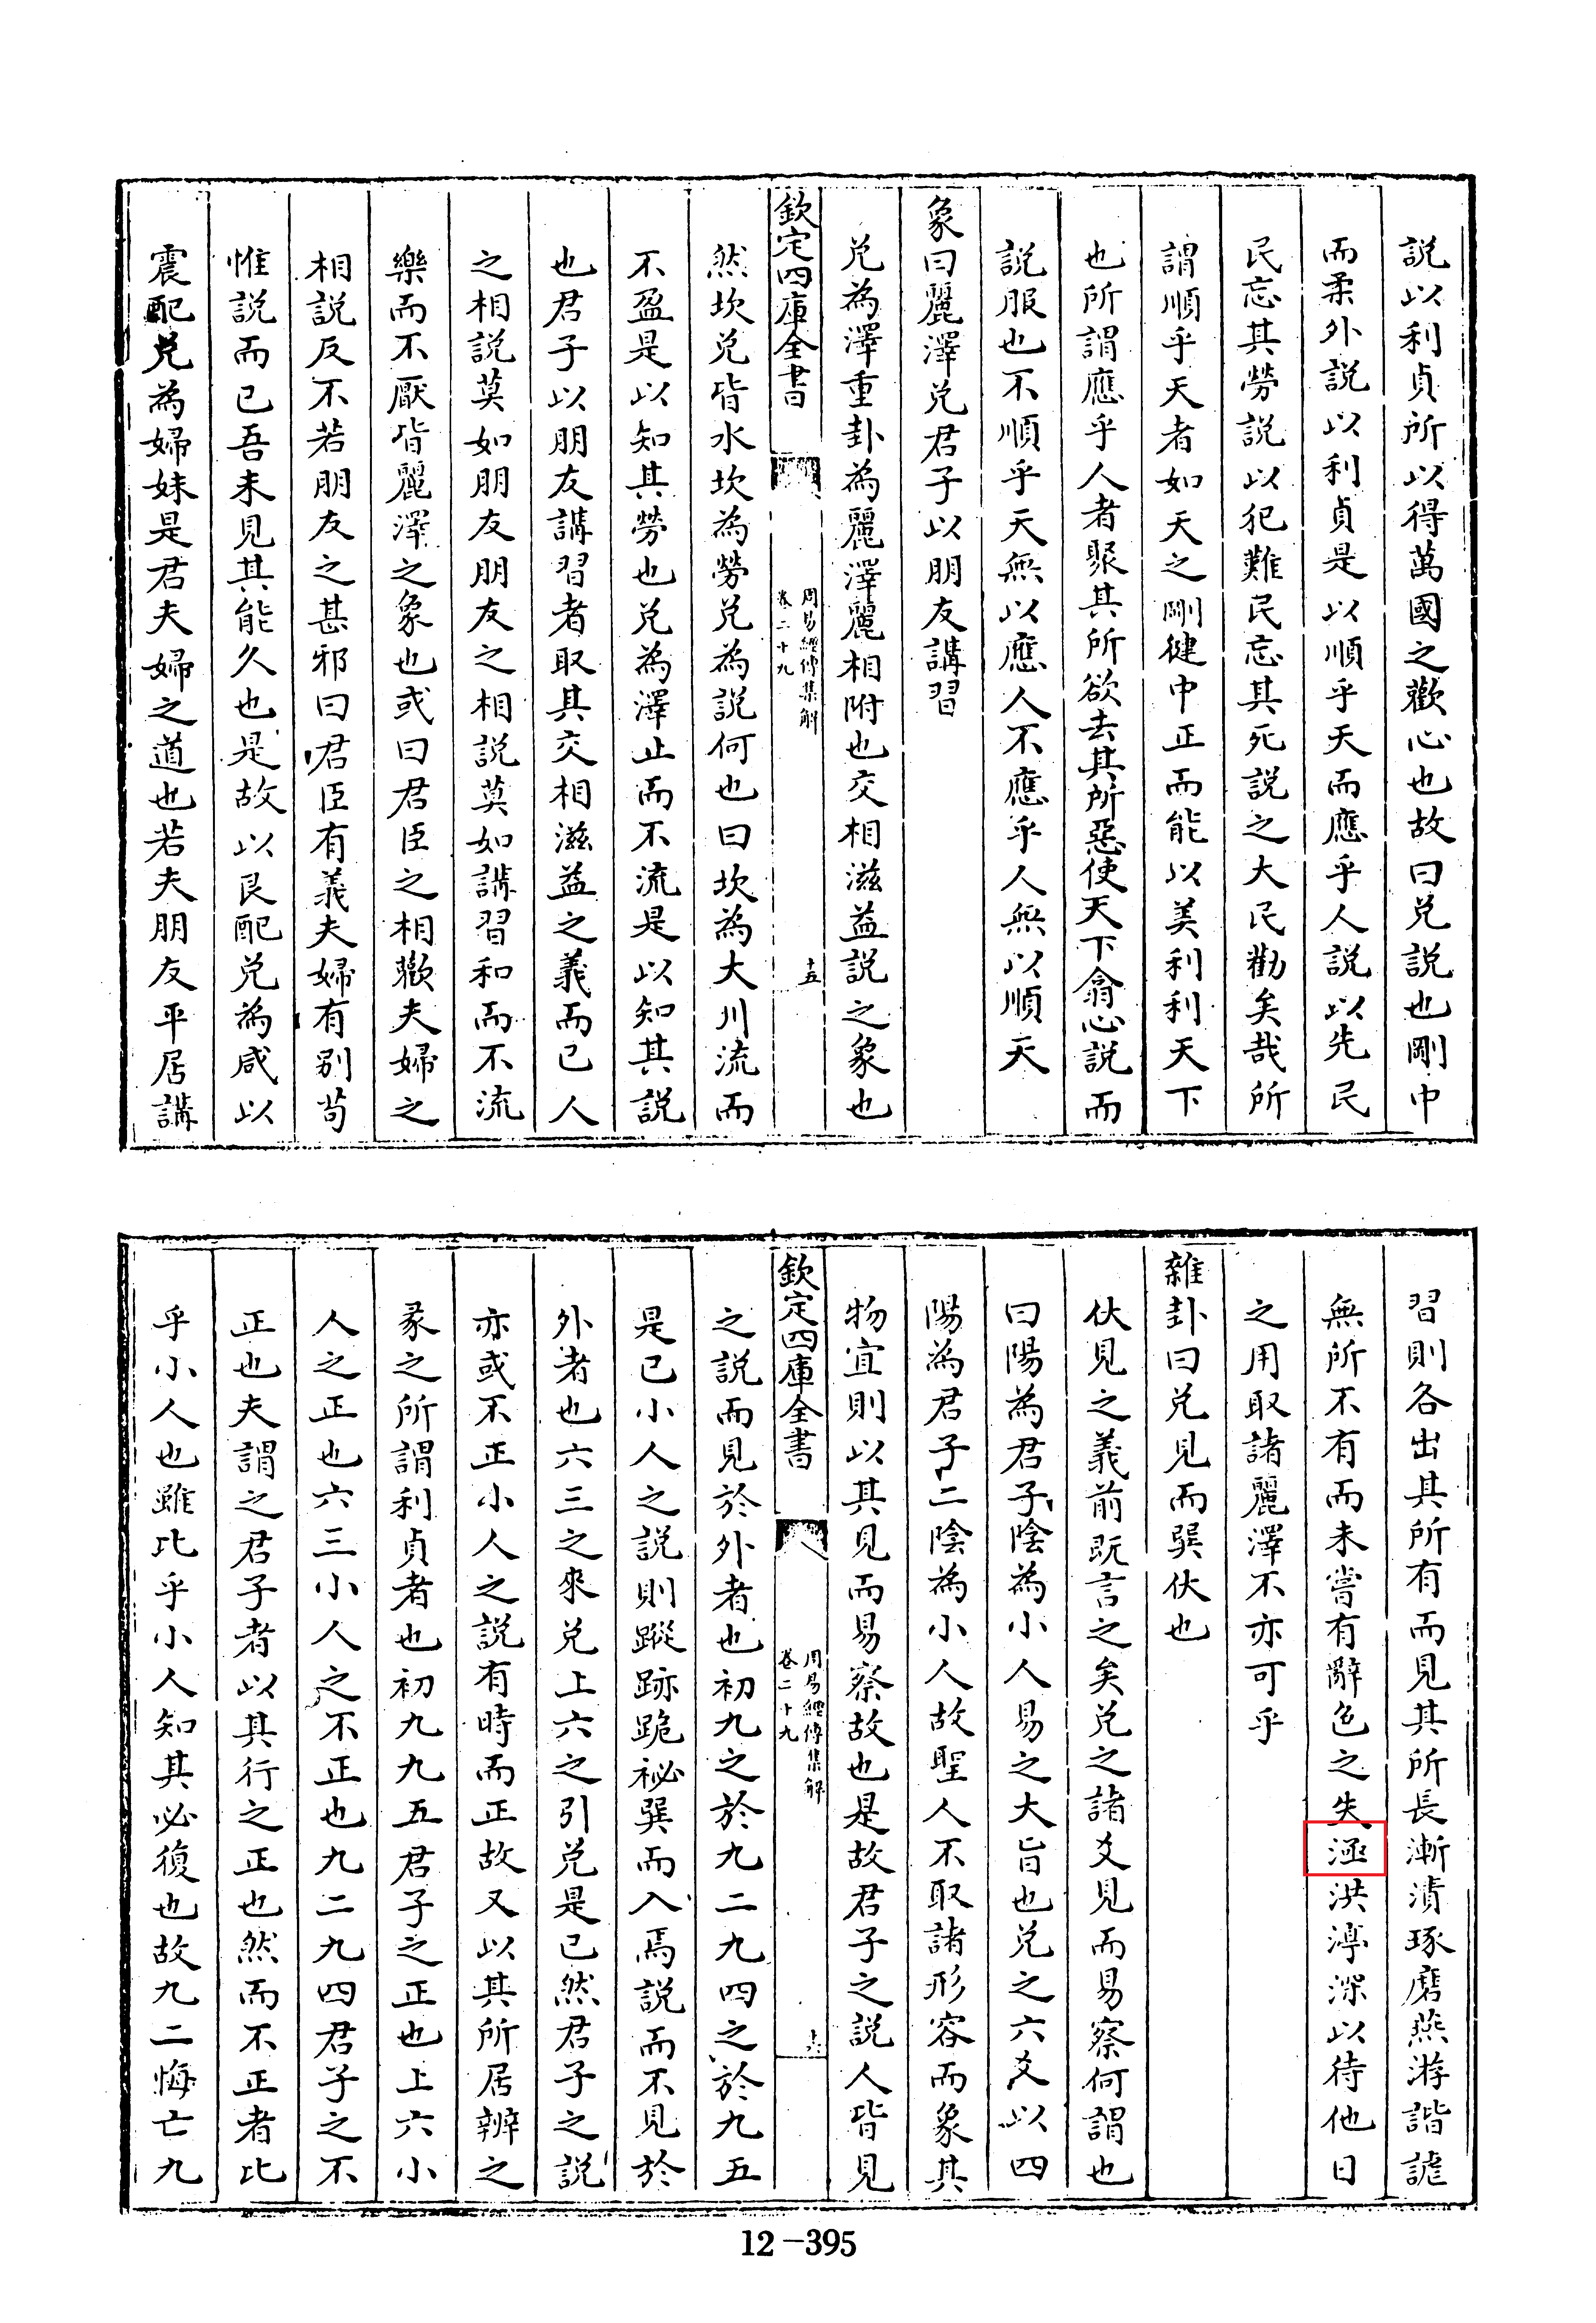 説以利貞所以得萬國之歡心也故曰兑説也剛中
而柔外説以利貞是以順乎天而應乎人説以先民
民忘其勞説以犯難民忘其死説之大民勸矣哉所
謂順乎天者如天之剛健中正而能以美利利天下
也所謂應乎人者聚其所欲去其所惡使天下翕心説而
説服也不順乎天無以應人不應乎人無以順天
象曰麗澤兑君子以朋友講習
兑為澤重卦為麗澤麗相附也交相滋益説之象也
欽定四庫全書
周易經傳集解
卷二十九
十五
然坎兑皆水坎為勞兑為説何也曰坎為大川流而
不盈是以知其勞也兑為澤止而不流是以知其説
也君子以朋友講習者取其交相滋益之義而已人
之相説莫如朋友朋友之相説莫如講習和而不流
樂而不厭皆麗澤之象也或曰君臣之相歡夫婦之
相説反不若朋友之甚邪曰君臣有義夫婦有别茍
惟説而已吾未見其能久也是故以艮配兑為咸以
震配兑為婦妹是君夫婦之道也若夫朋友平居講
習則各出其所有而見其所長漸漬琢磨燕游諧謔
無所不有而未嘗有辭色之失涵洪渟深以待他日
之用取諸麗澤不亦可乎
雜卦曰兑見而巽伏也
伏見之義前既言之矣兑之諸爻見而易察何謂也
曰陽為君子陰為小人易之大旨也兑之六爻以四
陽為君子二陰為小人故聖人不取諸形容而象其
物宜則以其見而易察故也是故君子之説人皆見
欽定四庫全書
周易經傳集解
卷二十九
十六
之説而見於外者也初九之於九二九四之於九五
是已小人之説則蹤跡詭祕巽而入焉説而不見於
外者也六三之來兑上六之引兑是已然君子之説
亦或不正小人之説有時而正故又以其所居辨之
彖之所謂利貞者也初九九五君子之正也上六小
人之正也六三小人之不正也九二九四君子之不
正也夫謂之君子者以其行之正也然而不正者比
乎小人也雖比乎小人知其必復也故九二悔亡九
12-395